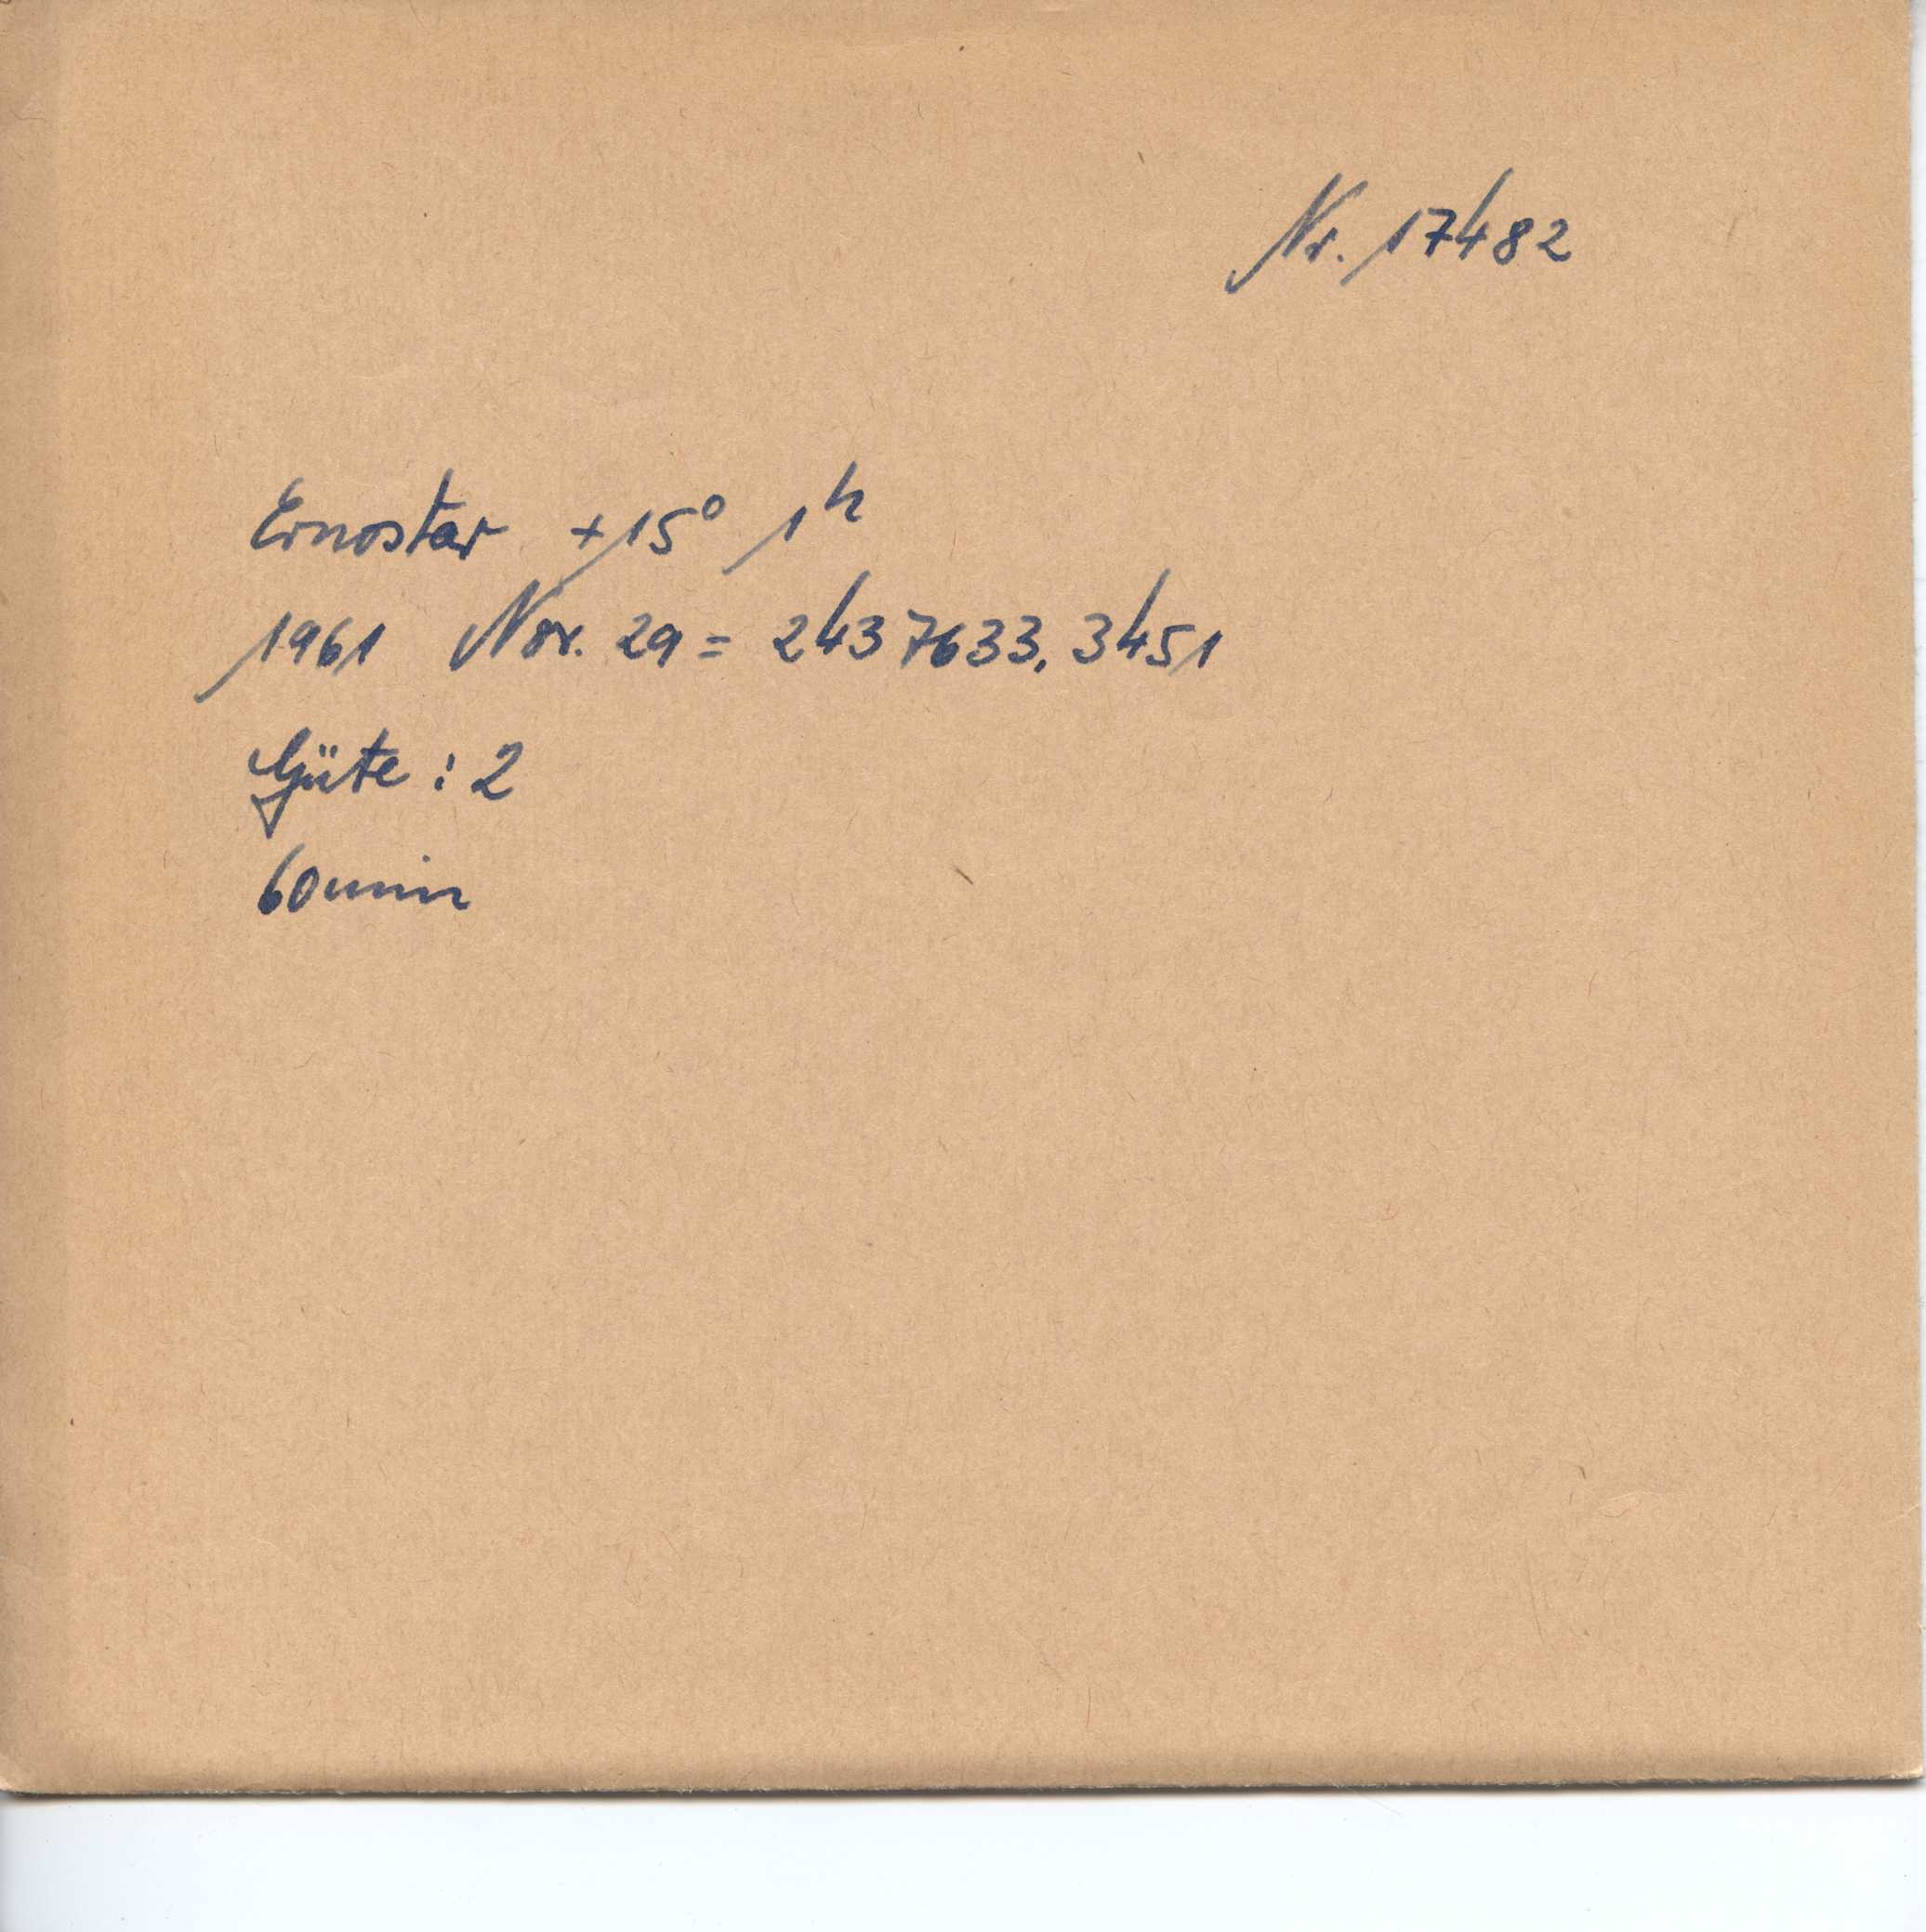 Nr. 17482
Ernostar +15° 1ʰ
1961 Nov. 29 = 2437633.3451
Güte : 2
60min